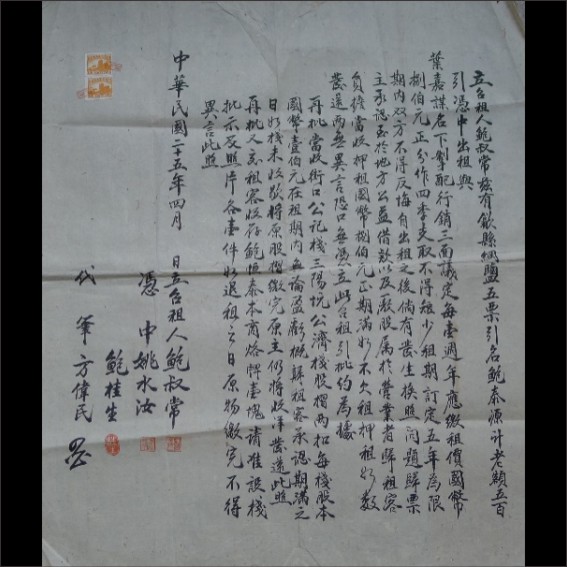 立合租人鮑叔常兹有歙縣綱鹽五票引名鮑泰源計老額五百
引憑中出租與
葉嘉謀名下掣配行銷三面議定每壹週年應繳租價國幣
捌伯元正分作四季支取不得短少租期訂定五年為限
期内双方不得反悔自出租之後倘有發生換照問題歸票
主承認至於地方公益借款以及廠股属於營業者歸租客
負擔當收押租國幣捌伯元正期滿如不欠租押租如数
發還兩無異言恐口無憑立此合租引批約為據
再批當收街口公記棧三陽坑公濟棧股摺兩扣每棧股本
國幣壹伯元在租期内無論盈虧概歸租客承認期滿之
日如棧未收歇將原股摺繳完原主仍將收洋發還此照
再批人名租客收存鮑恒泰本商烙牌壹塊請准設棧
批示及照片各壹件如退租之日原物繳完不得
異言此照
中華民國二十五年四月 日立合租人鮑叔常
憑中姚水汝
鮑桂生
代筆方偉民